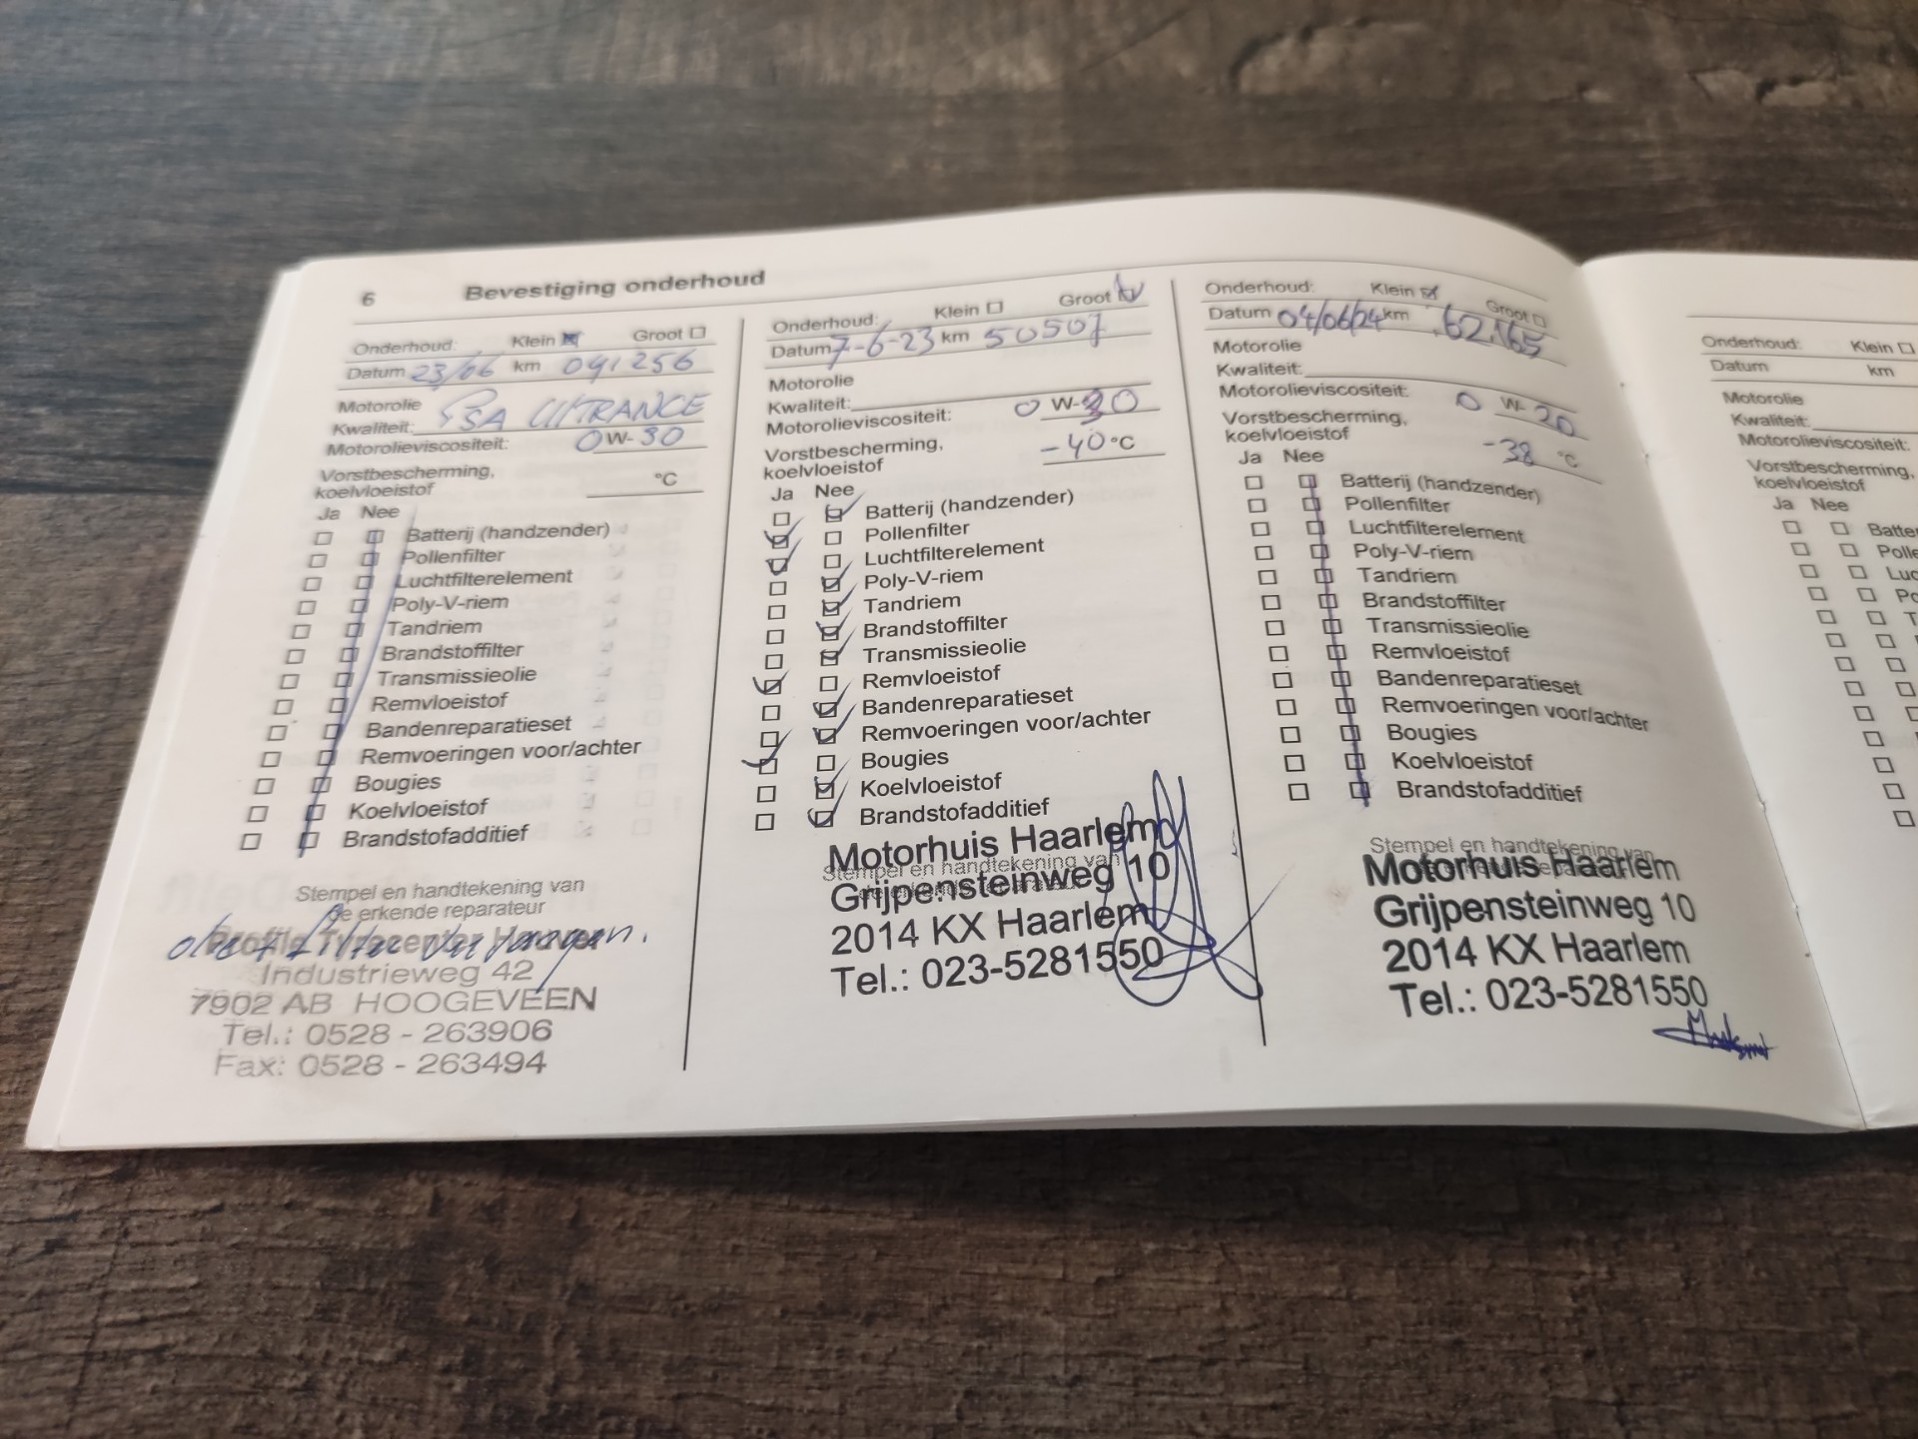 6 Bevestiging onderhoud
Onderhoud: Klein Groot
Datum 23/06 km 041256
Motorolie
Kwaliteit: PSA ULTRANCE
Motorolieviscositeit: 0 W- 30
Vorstbescherming,
koelvloeistof °C
Ja Nee
Batterij (handzender)
Pollenfilter
Luchtfilterelement
Poly-V-riem
Tandriem
Brandstoffilter
Transmissieolie
Remvloeistof
Bandenreparatieset
Remvoeringen voor/achter
Bougies
Koelvloeistof
Brandstofadditief
Stempel en handtekening van
de erkende reparateur
olie + filter vervangen.
Profile Tyrecenter
Industrieweg 42
7902 AB HOOGEVEEN
Tel.: 0528 - 263906
Fax: 0528 - 263494
Onderhoud: Klein Groot
Datum 7-6-23 km 50507
Motorolie
Kwaliteit:
Motorolieviscositeit: 0 W-30
Vorstbescherming,
koelvloeistof -40 °C
Ja Nee
Batterij (handzender)
Pollenfilter
Luchtfilterelement
Poly-V-riem
Tandriem
Brandstoffilter
Transmissieolie
Remvloeistof
Bandenreparatieset
Remvoeringen voor/achter
Bougies
Koelvloeistof
Brandstofadditief
Stempel en handtekening van
Motorhuis Haarlem
Grijpensteinweg 10
2014 KX Haarlem
Tel.: 023-5281550
Onderhoud: Klein Groot
Datum 04/06/24 km 62.165
Motorolie
Kwaliteit:
Motorolieviscositeit: 0 W- 20
Vorstbescherming,
koelvloeistof -38 °C
Ja Nee
Batterij (handzender)
Pollenfilter
Luchtfilterelement
Poly-V-riem
Tandriem
Brandstoffilter
Transmissieolie
Remvloeistof
Bandenreparatieset
Remvoeringen voor/achter
Bougies
Koelvloeistof
Brandstofadditief
Stempel en handtekening van
Motorhuis Haarlem
Grijpensteinweg 10
2014 KX Haarlem
Tel.: 023-5281550
Onderhoud: Klein
Datum km
Motorolie
Kwaliteit:
Motorolieviscositeit:
Vorstbescherming,
koelvloeistof
Ja Nee
Batte
Polle
Luc
Po
T